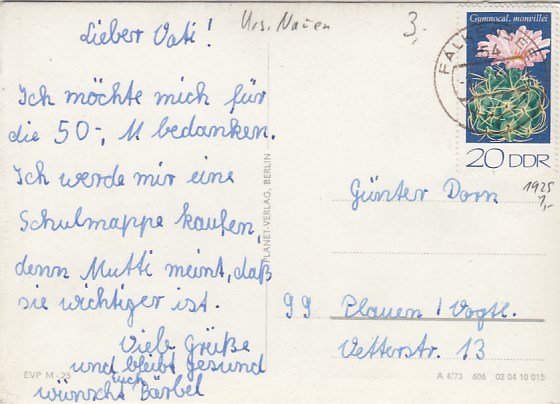 Lieber Vati!
Ich möchte mich für
die 50-, M bedanken.
Ich werde mir eine
Schulmappe kaufen
denn Mutti meint, daß
sie wichtiger ist.
Viele Grüße
und bleibt gesund
wünscht euch Bärbel
EVP M -,25
PLANET-VERLAG, BERLIN
3,-
Gymnocal. monvillei
20 DDR
1925
1,-
Günter Dorn
99 Plauen / Vogtl.
Vetterstr. 13
A 4/73 606 02 04 10 015